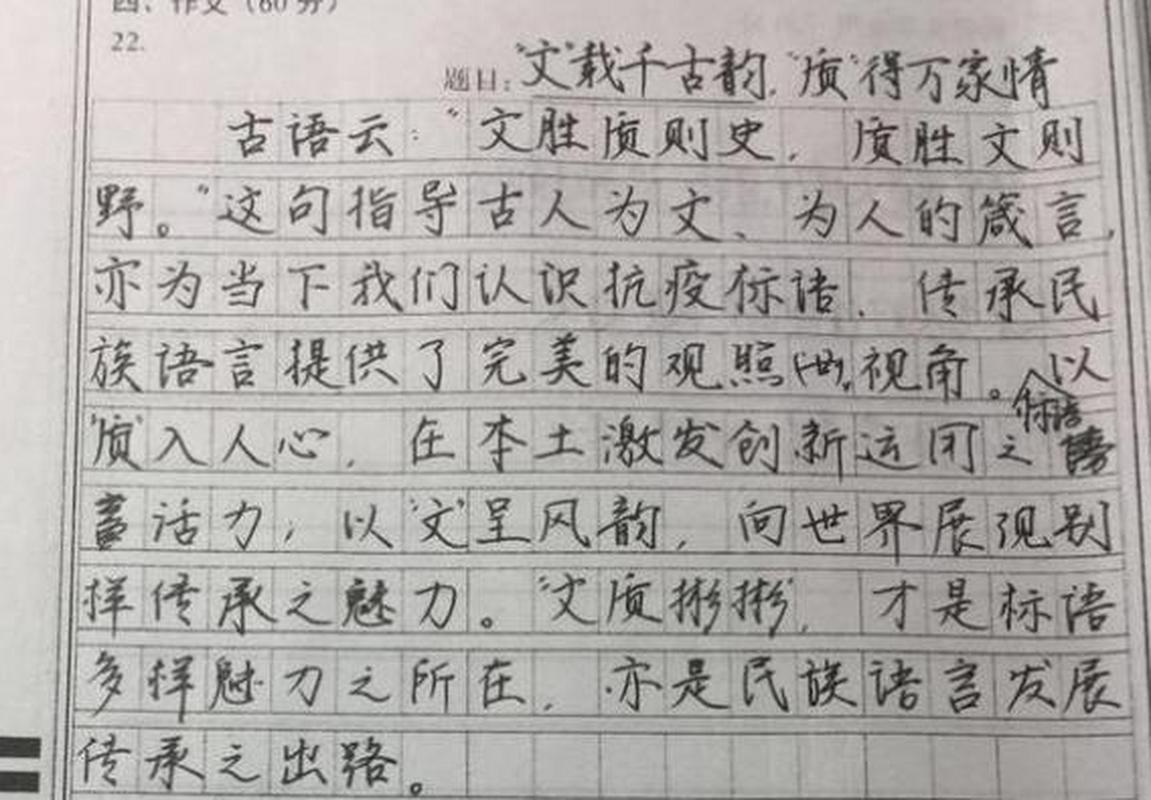 四、作文（60分）
22.
题目：“文”载千古韵，“质”得万家情
古语云：“文胜质则史，质胜文则
野。”这句指导古人为文、为人的箴言，
亦为当下我们认识抗疫标语，传承民
族语言提供了完美的观照视角。以
“质”入人心，在本土激发创新运用之标语
活力；以“文”呈风韵，向世界展现别
样传承之魅力。“文质彬彬”，才是标语
多样魅力之所在，亦是民族语言发展
传承之出路。